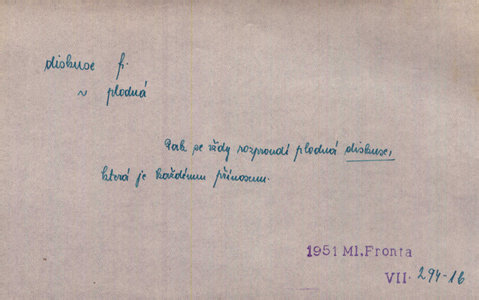 diskuse f.
v plodná
Pak se vždy rozproudí plodná diskuse,
která je každému přínosem.
1951 Ml. Fronta
VII. 294-16